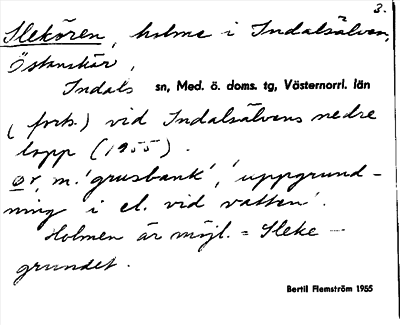 3.
Slekören, holme i Indalsälven,
Östanskär,
Indals sn, Med. ö. doms. tg, Västernorrl. län
(forts.) vid Indalsälvens nedre
lopp (1955).
ør, m. 'grusbank', 'uppgrund-
ning i el. vid vatten'.
Holmen är möjl. = Sleke-
grundet.
Bertil Flemström 1955